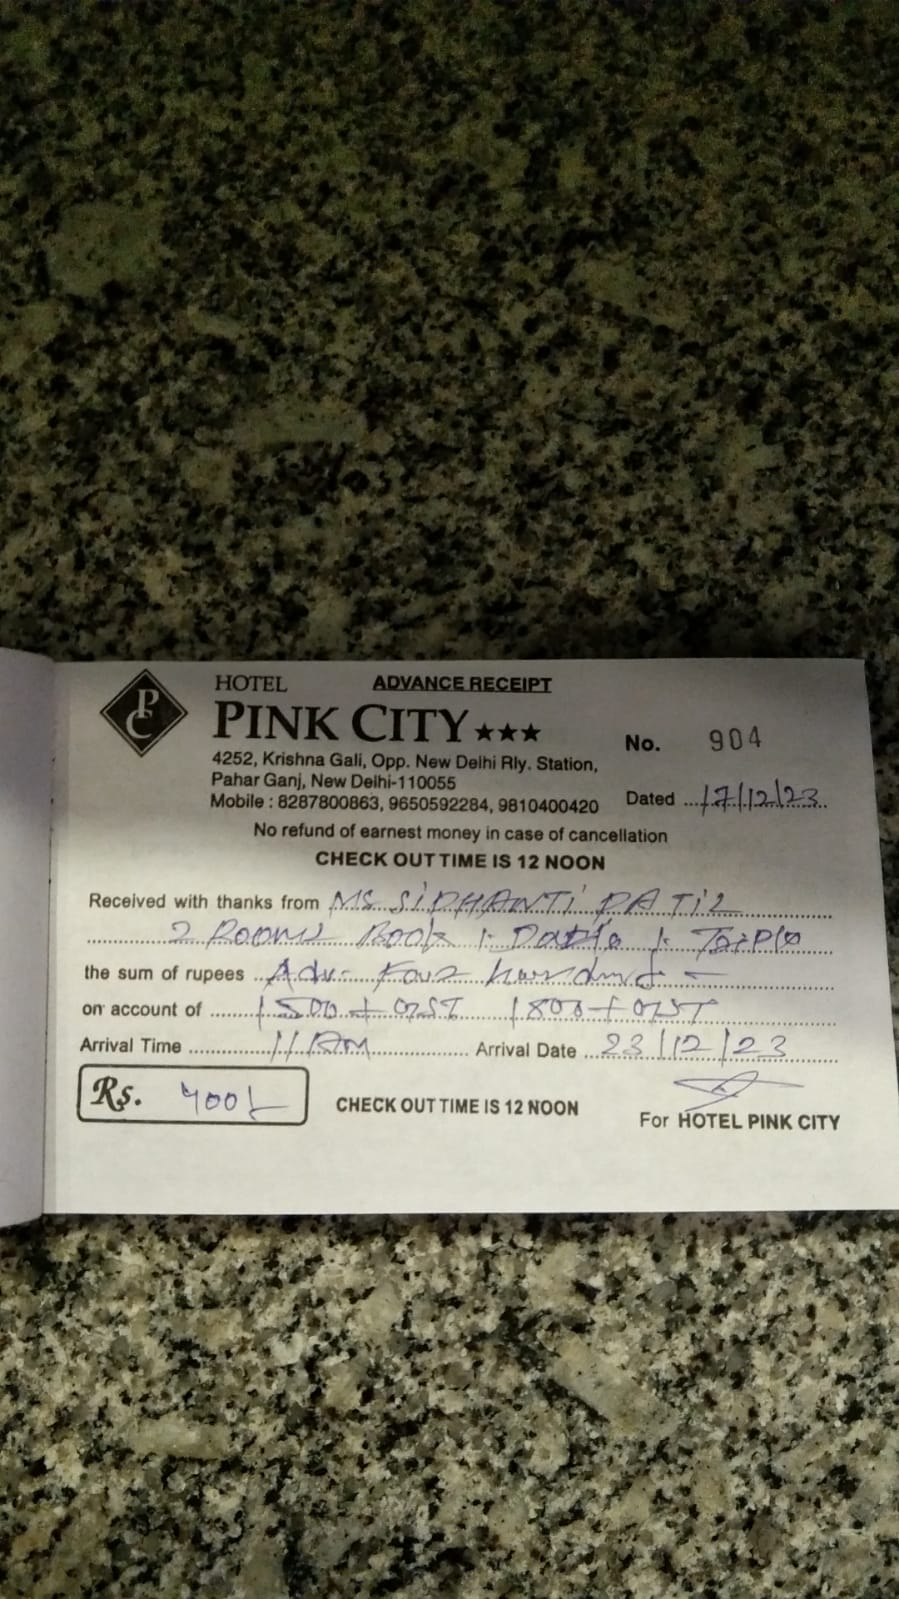 PC
HOTEL ADVANCE RECEIPT
PINK CITY ★★★
No. 904
4252, Krishna Gali, Opp. New Delhi Rly. Station,
Pahar Ganj, New Delhi-110055
Mobile : 8287800863, 9650592284, 9810400420 Dated 17/12/23
No refund of earnest money in case of cancellation
CHECK OUT TIME IS 12 NOON
Received with thanks from MS SIDHANTI PATIL
2 Rooms Book 1. 1.
the sum of rupees Adv. Four hundred -
on account of 1500 + GST 1800 + GST
Arrival Time 11AM Arrival Date 23/12/23
Rs. 400/- CHECK OUT TIME IS 12 NOON
For HOTEL PINK CITY